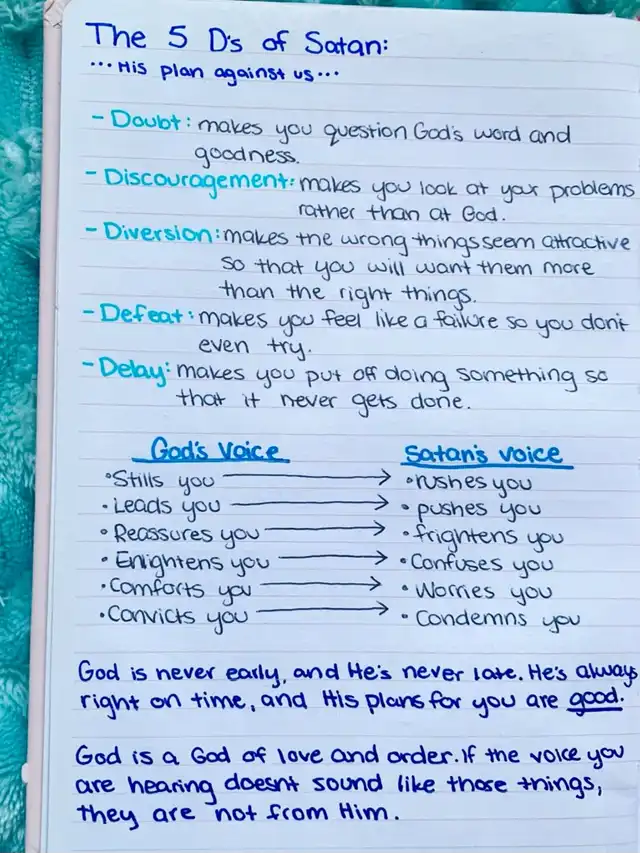 The 5 D's of Satan:
...His plan against us...
- Doubt: makes you question God's word and
goodness.
- Discouragement: makes you look at your problems
rather than at God.
- Diversion: makes the wrong things seem attractive
so that you will want them more
than the right things.
- Defeat: makes you feel like a failure so you don't
even try.
- Delay: makes you put off doing something so
that it never gets done.
God's Voice → Satan's voice
• Stills you → • rushes you
• Leads you → • pushes you
• Reassures you → • frightens you
• Enlightens you → • Confuses you
• Comforts you → • Worries you
• Convicts you → • Condemns you
God is never early, and He's never late. He's always
right on time, and His plans for you are good.
God is a God of love and order. If the voice you
are hearing doesnt sound like those things,
they are not from Him.